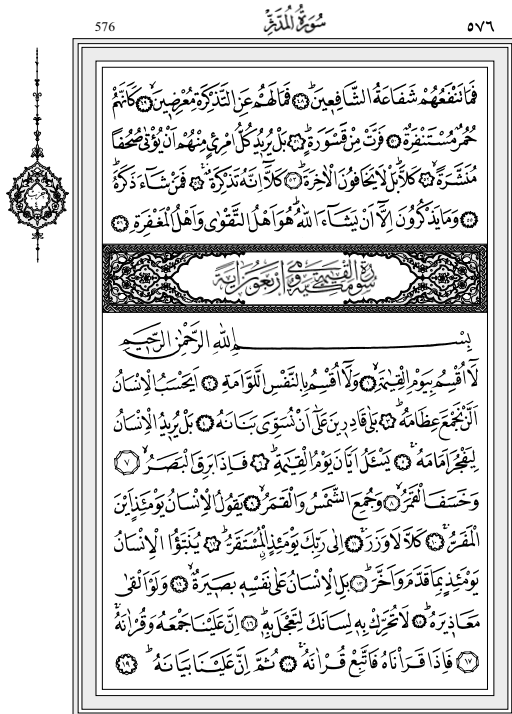 576 سُورَةُ الْمُدَّثِّرِ ٥٧٦
فَمَا تَنْفَعُهُمْ شَفَاعَةُ الشَّافِعِينَۜ ﴿٤٨﴾ فَمَا لَهُمْ عَنِ التَّذْكِرَةِ مُعْرِضِينَۙ ﴿٤٩﴾ كَاَنَّهُمْ
حُمُرٌ مُسْتَنْفِرَةٌۙ ﴿٥٠﴾ فَرَّتْ مِنْ قَسْوَرَةٍۜ ﴿٥١﴾ بَلْ يُرِيدُ كُلُّ امْرِئٍ مِنْهُمْ اَنْ يُؤْتٰى صُحُفًا
مُنَشَّرَةًۙ ﴿٥٢﴾ كَلَّاۜ بَلْ لَا يَخَافُونَ الْاٰخِرَةَۜ ﴿٥٣﴾ كَلَّٓا اِنَّهُ تَذْكِرَةٌۚ ﴿٥٤﴾ فَمَنْ شَٓاءَ ذَكَرَهُۜ
﴿٥٥﴾ وَمَا يَذْكُرُونَ اِلَّٓا اَنْ يَشَٓاءَ اللّٰهُۜ هُوَ اَهْلُ التَّقْوٰى وَاَهْلُ الْمَغْفِرَةِ ﴿٥٦﴾
سُورَةُ الْقِيٰمَةِ مَكِّيَّةٌ وَهِيَ اَرْبَعُونَ اٰيَةً
بِسْمِ اللّٰهِ الرَّحْمٰنِ الرَّحِيمِ
لَٓا اُقْسِمُ بِيَوْمِ الْقِيٰمَةِۙ ﴿١﴾ وَلَٓا اُقْسِمُ بِالنَّفْسِ اللَّوَّامَةِ ﴿٢﴾ اَيَحْسَبُ الْاِنْسَانُ
اَلَّنْ نَجْمَعَ عِظَامَهُۜ ﴿٣﴾ بَلٰى قَادِرِينَ عَلٰٓى اَنْ نُسَوِّيَ بَنَانَهُ ﴿٤﴾ بَلْ يُرِيدُ الْاِنْسَانُ
لِيَفْجُرَ اَمَامَهُۚ ﴿٥﴾ يَسْـَٔلُ اَيَّانَ يَوْمُ الْقِيٰمَةِۜ ﴿٦﴾ فَاِذَا بَرِقَ الْبَصَرُۙ ﴿٧﴾
وَخَسَفَ الْقَمَرُۙ ﴿٨﴾ وَجُمِعَ الشَّمْسُ وَالْقَمَرُۙ ﴿٩﴾ يَقُولُ الْاِنْسَانُ يَوْمَئِذٍ اَيْنَ
الْمَفَرُّۚ ﴿١٠﴾ كَلَّا لَا وَزَرَۜ ﴿١١﴾ اِلٰى رَبِّكَ يَوْمَئِذٍ ࣙالْمُسْتَقَرُّۜ ﴿١٢﴾ يُنَبَّؤُا الْاِنْسَانُ
يَوْمَئِذٍ بِمَا قَدَّمَ وَاَخَّرَۜ ﴿١٣﴾ بَلِ الْاِنْسَانُ عَلٰى نَفْسِهِ بَصِيرَةٌۙ ﴿١٤﴾ وَلَوْ اَلْقٰى
مَعَاذِيرَهُۜ ﴿١٥﴾ لَا تُحَرِّكْ بِهِ لِسَانَكَ لِتَعْجَلَ بِهِۜ ﴿١٦﴾ اِنَّ عَلَيْنَا جَمْعَهُ وَقُرْاٰنَهُۚ
﴿١٧﴾ فَاِذَا قَرَاْنَاهُ فَاتَّبِعْ قُرْاٰنَهُۚ ﴿١٨﴾ ثُمَّ اِنَّ عَلَيْنَا بَيَانَهُۜ ﴿١٩﴾